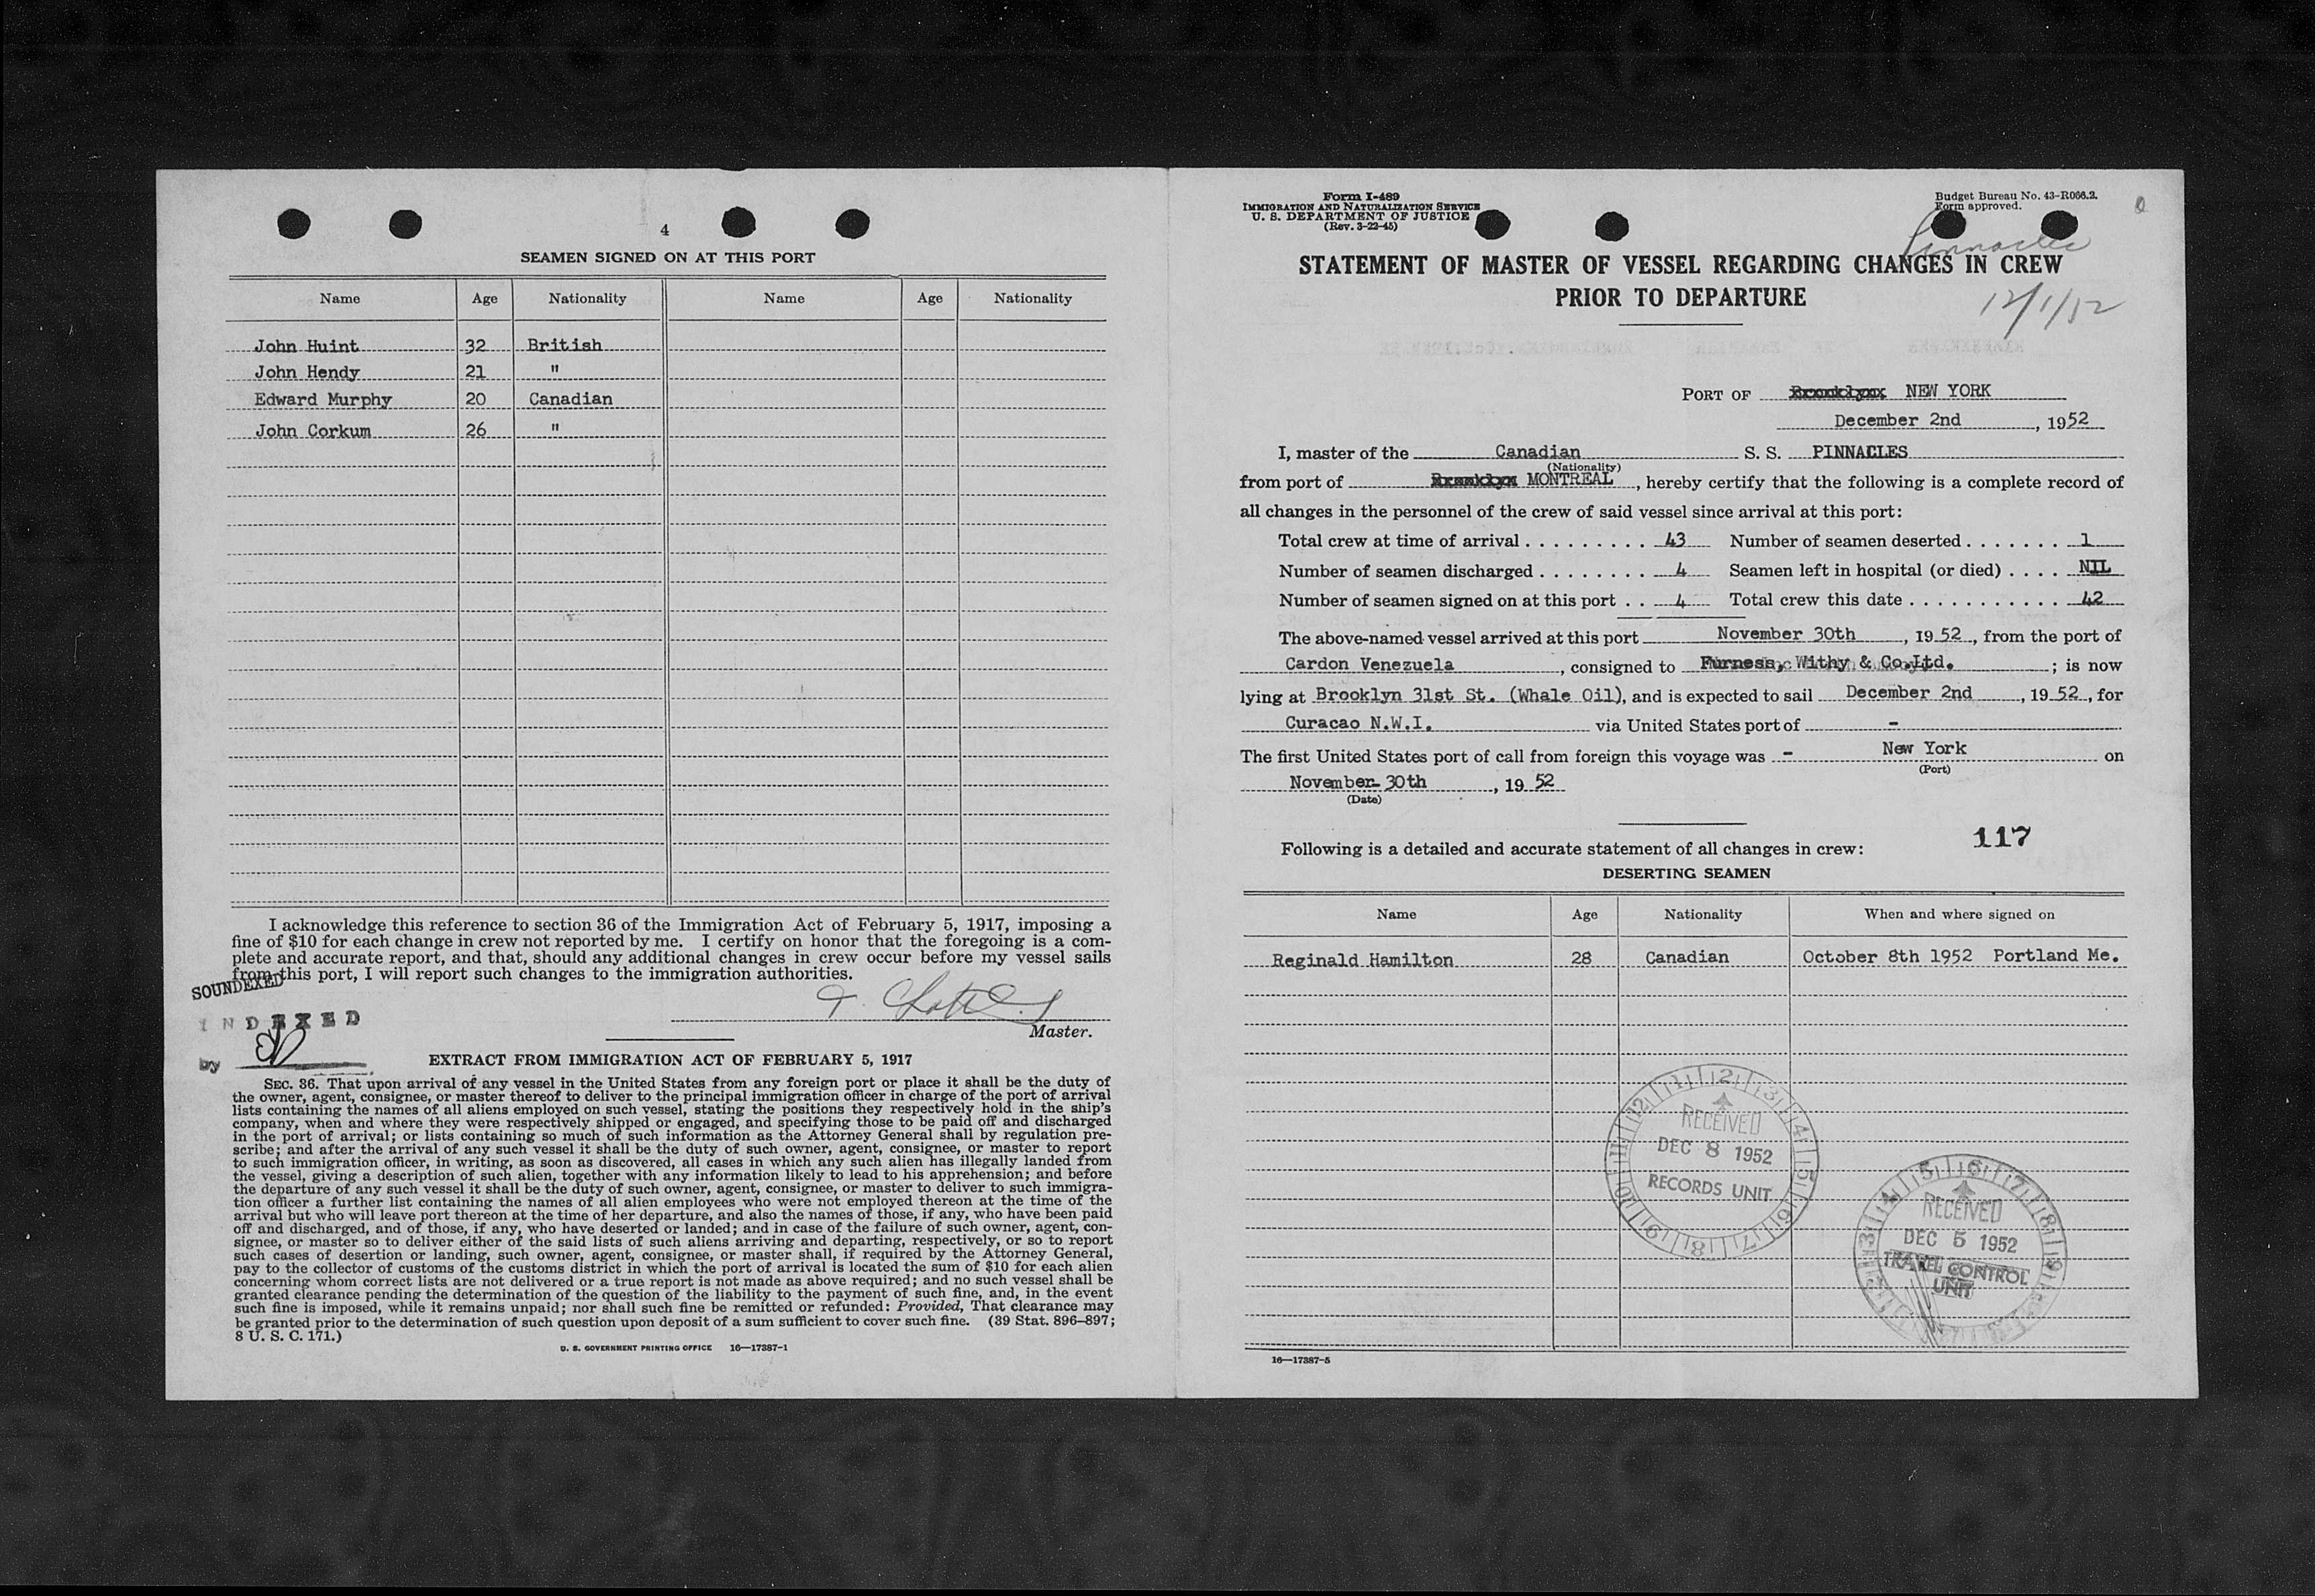 4
SEAMEN SIGNED ON AT THIS PORT
Name Age Nationality Name Age Nationality
John Huint 32 British
John Hendy 21 "
Edward Murphy 20 Canadian
John Corkum 26 "
I acknowledge this reference to section 36 of the Immigration Act of February 5, 1917, imposing a
fine of $10 for each change in crew not reported by me. I certify on honor that the foregoing is a com-
plete and accurate report, and that, should any additional changes in crew occur before my vessel sails
from this port, I will report such changes to the immigration authorities.
SOUNDEXED
INDEXED
by
Master.
EXTRACT FROM IMMIGRATION ACT OF FEBRUARY 5, 1917
SEC. 36. That upon arrival of any vessel in the United States from any foreign port or place it shall be the duty of
the owner, agent, consignee, or master thereof to deliver to the principal immigration officer in charge of the port of arrival
lists containing the names of all aliens employed on such vessel, stating the positions they respectively hold in the ship's
company, when and where they were respectively shipped or engaged, and specifying those to be paid off and discharged
in the port of arrival; or lists containing so much of such information as the Attorney General shall by regulation pre-
scribe; and after the arrival of any such vessel it shall be the duty of such owner, agent, consignee, or master to report
to such immigration officer, in writing, as soon as discovered, all cases in which any such alien has illegally landed from
the vessel, giving a description of such alien, together with any information likely to lead to his apprehension; and before
the departure of any such vessel it shall be the duty of such owner, agent, consignee, or master to deliver to such immigra-
tion officer a further list containing the names of all alien employees who were not employed thereon at the time of the
arrival but who will leave port thereon at the time of her departure, and also the names of those, if any, who have been paid
off and discharged, and of those, if any, who have deserted or landed; and in case of the failure of such owner, agent, con-
signee, or master so to deliver either of the said lists of such aliens arriving and departing, respectively, or so to report
such cases of desertion or landing, such owner, agent, consignee, or master shall, if required by the Attorney General,
pay to the collector of customs of the customs district in which the port of arrival is located the sum of $10 for each alien
concerning whom correct lists are not delivered or a true report is not made as above required; and no such vessel shall be
granted clearance pending the determination of the question of the liability to the payment of such fine, and, in the event
such fine is imposed, while it remains unpaid; nor shall such fine be remitted or refunded: Provided, That clearance may
be granted prior to the determination of such question upon deposit of a sum sufficient to cover such fine. (39 Stat. 896–897;
8 U. S. C. 171.)
U. S. GOVERNMENT PRINTING OFFICE 16—17387-1
Form I-489
IMMIGRATION AND NATURALIZATION SERVICE
U. S. DEPARTMENT OF JUSTICE
(Rev. 3-22-45)
Budget Bureau No. 43-R066.2.
Form approved.
Pinnacles
STATEMENT OF MASTER OF VESSEL REGARDING CHANGES IN CREW
PRIOR TO DEPARTURE
12/1/52
PORT OF Brooklyn NEW YORK
December 2nd, 1952
I, master of the Canadian S. S. PINNACLES
(Nationality)
from port of Brooklyn MONTREAL, hereby certify that the following is a complete record of
all changes in the personnel of the crew of said vessel since arrival at this port:
Total crew at time of arrival . . . . . . . . . 43 Number of seamen deserted . . . . . . . 1
Number of seamen discharged . . . . . . . . 4 Seamen left in hospital (or died) . . . . NIL
Number of seamen signed on at this port . . 4 Total crew this date . . . . . . . . . . . 42
The above-named vessel arrived at this port November 30th, 1952, from the port of
Cardon Venezuela, consigned to Furness, Withy & Co.Ltd.; is now
lying at Brooklyn 31st St. (Whale Oil), and is expected to sail December 2nd, 1952, for
Curacao N.W.I. via United States port of -
The first United States port of call from foreign this voyage was - New York on
(Port)
November 30th, 1952
(Date)
117
Following is a detailed and accurate statement of all changes in crew:
DESERTING SEAMEN
Name Age Nationality When and where signed on
Reginald Hamilton 28 Canadian October 8th 1952 Portland Me.
RECEIVED
DEC 8 1952
RECORDS UNIT
RECEIVED
DEC 5 1952
TRAVEL CONTROL
UNIT
16—17387-5